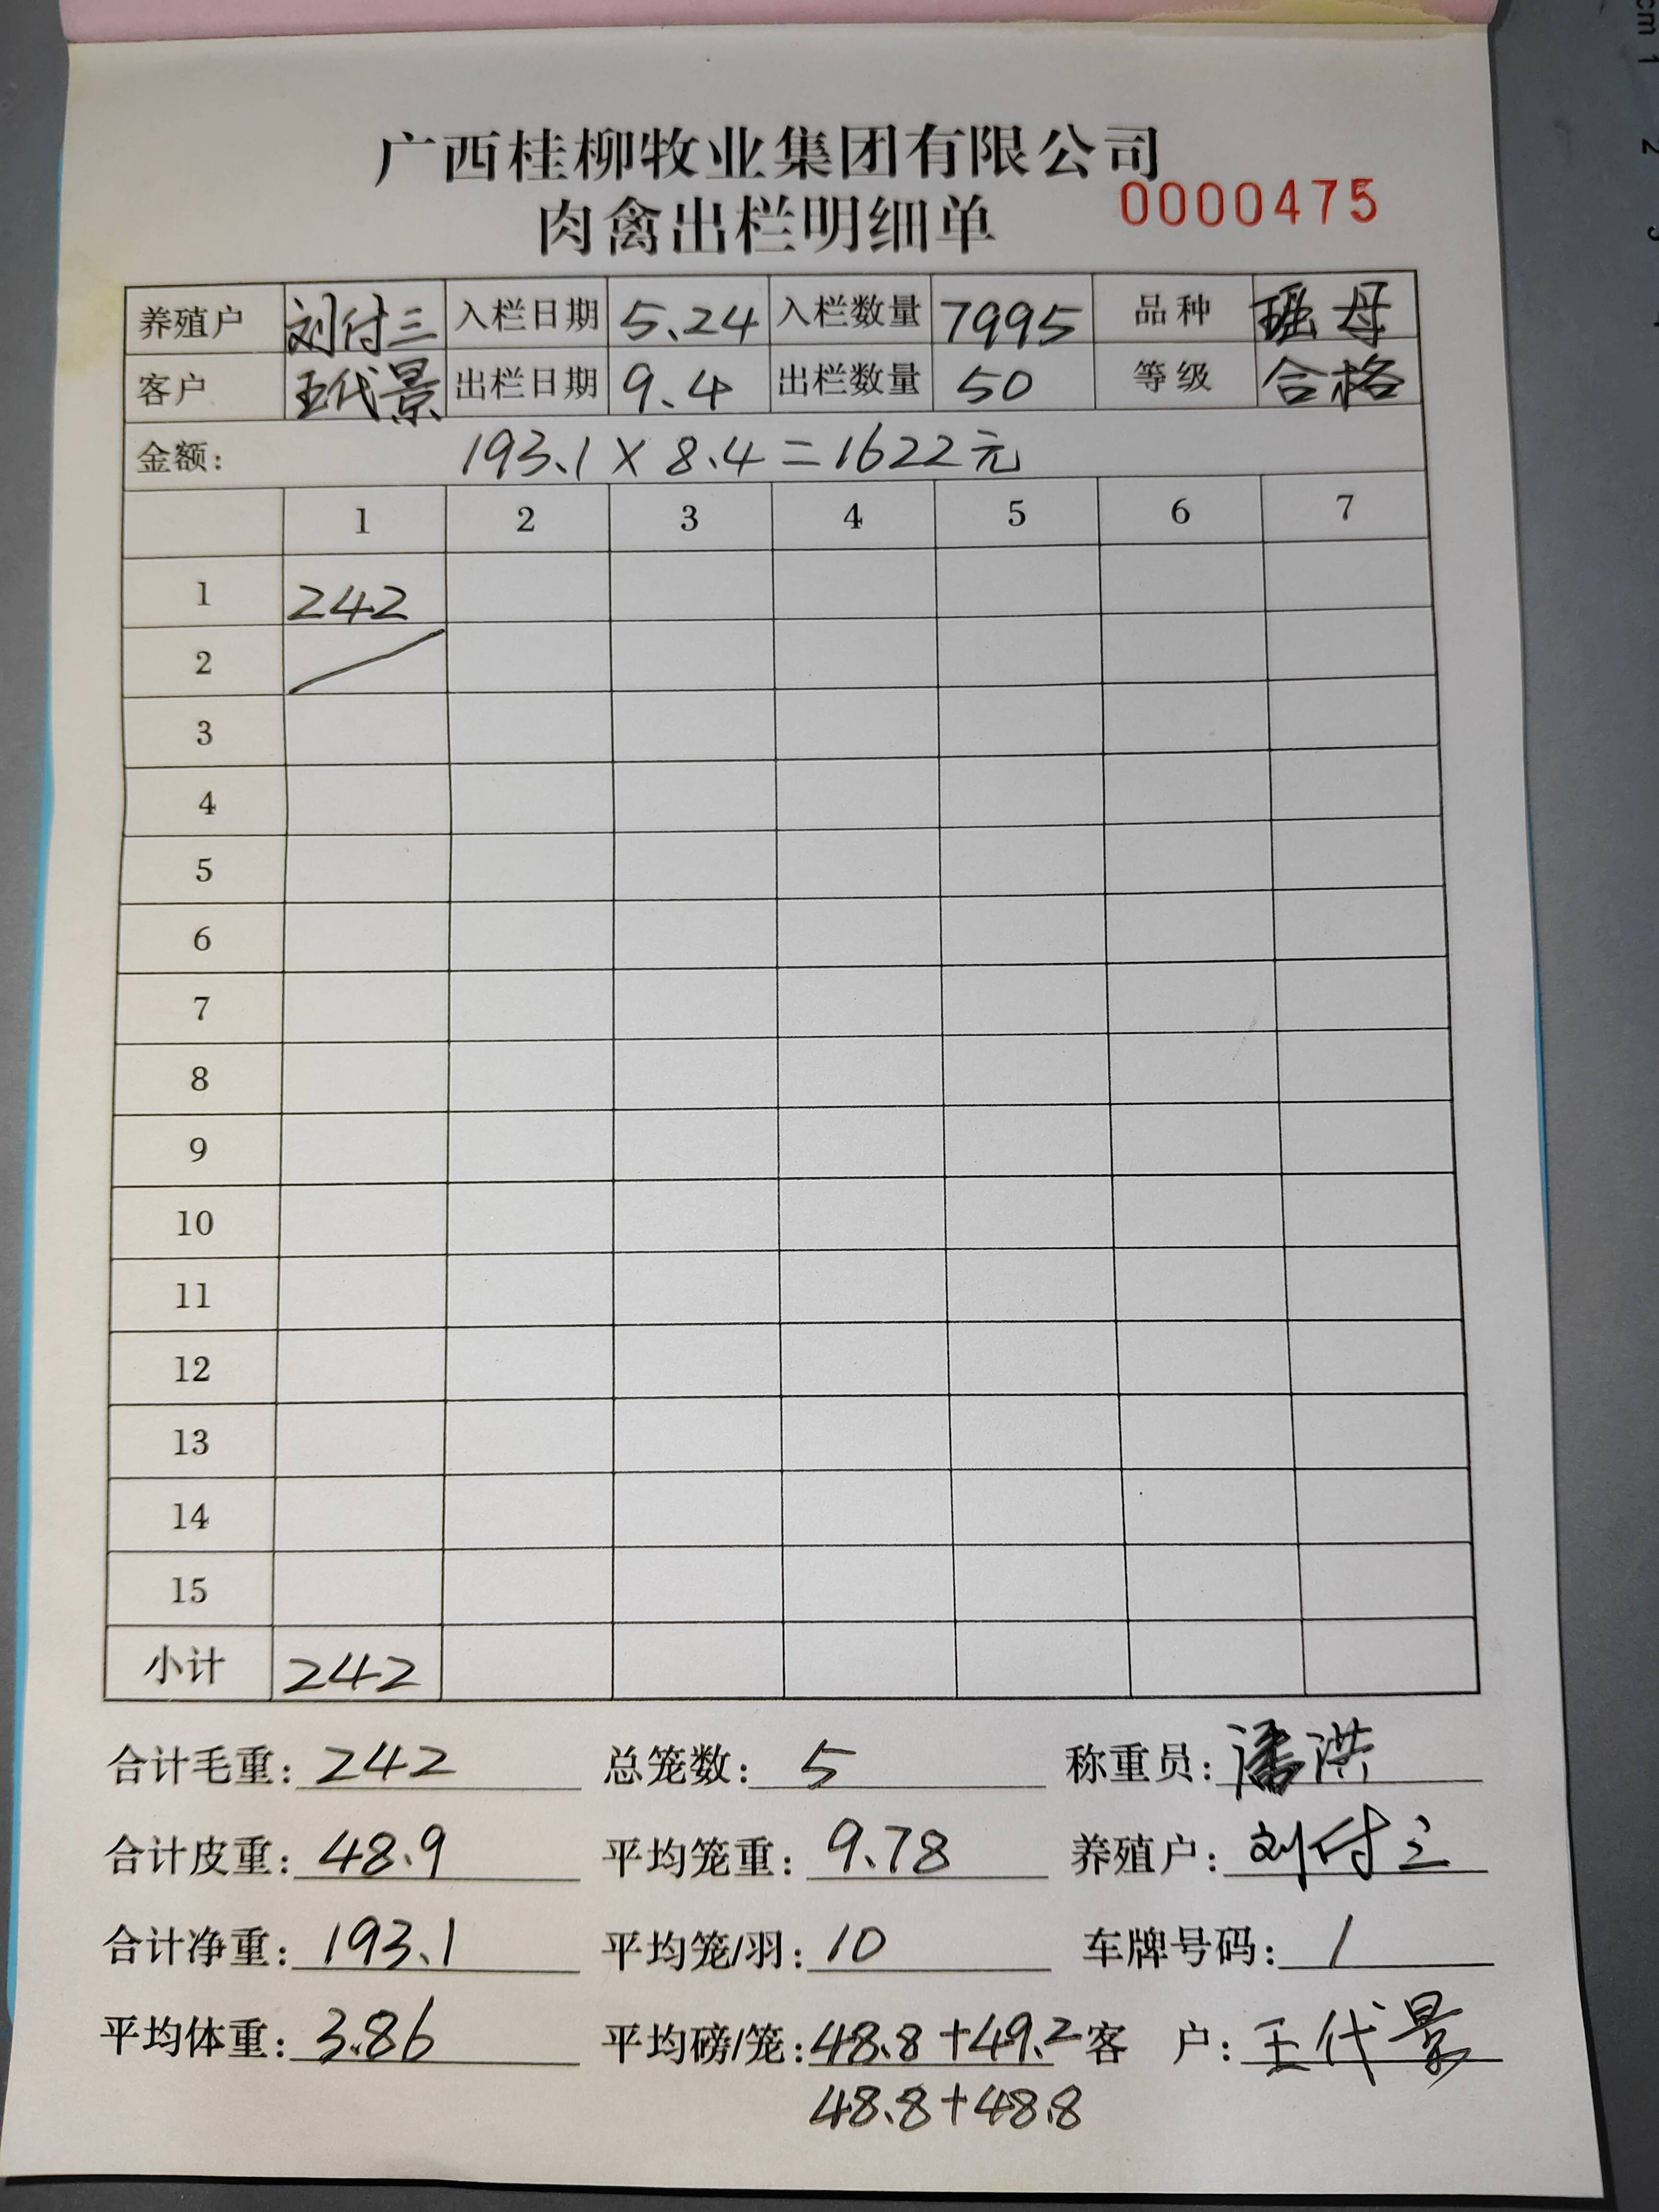 广西桂柳牧业集团有限公司
肉禽出栏明细单 0000475
养殖户 刘付三 入栏日期 5.24 入栏数量 7995 品种 瑶母
客户 王代景 出栏日期 9.4 出栏数量 50 等级 合格
金额: 193.1×8.4=1622元
1 2 3 4 5 6 7
1 242
2
3
4
5
6
7
8
9
10
11
12
13
14
15
小计 242
合计毛重: 242 总笼数: 5 称重员: 潘洪
合计皮重: 48.9 平均笼重: 9.78 养殖户: 刘付三
合计净重: 193.1 平均笼/羽: 10 车牌号码: /
平均体重: 3.86 平均磅/笼: 48.8+49.2 客 户: 王代景
48.8+48.8
cm 1
2
3